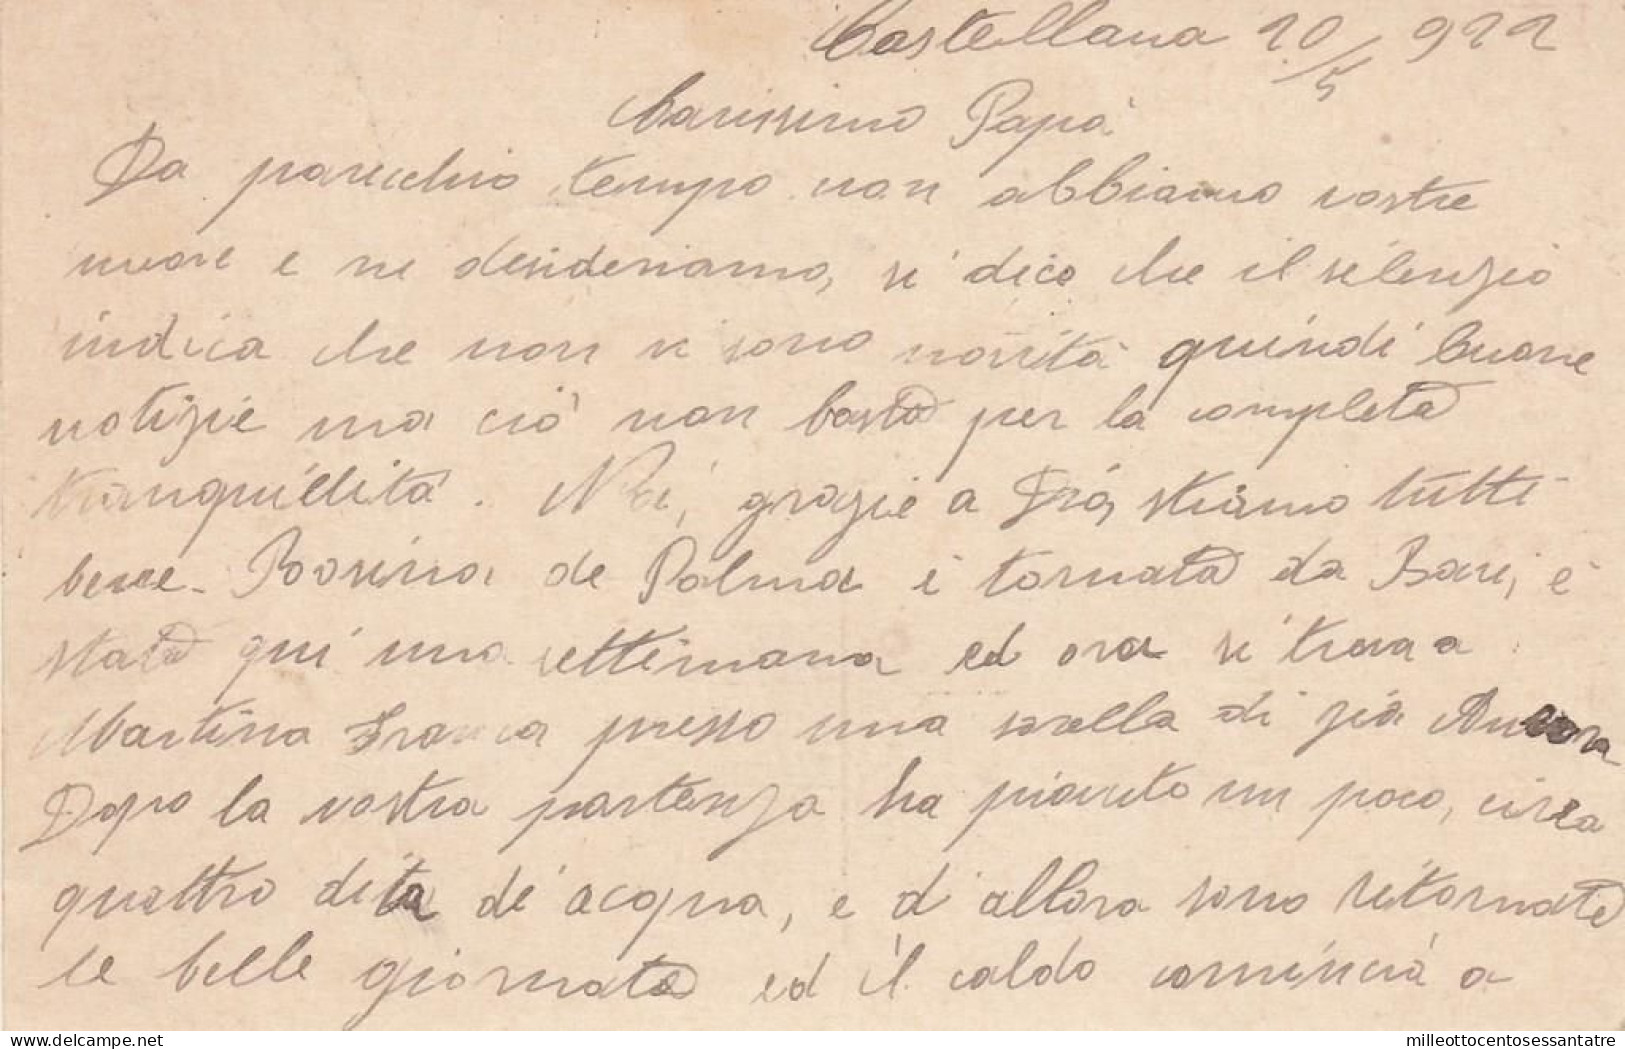 Castellana 20/5 922
Carissimo Papà
Da parecchio tempo non abbiamo vostre
nuove e ne desideriamo, si dice che il silenzio
indica che non vi sono novità quindi buone
notizie ma ciò non basta per la completa
tranquillità. Noi, grazie a Dio, stiamo tutti
bene - Rosina de Palma è tornata da Bari, è
stata qui una settimana ed ora si trova a
Martina Franca presso una sorella di zia
Dopo la vostra partenza ha piovuto un poco, circa
quattro dita di acqua, e d'allora sono ritornate
le belle giornate ed il caldo comincia a
delcampe.net
milleottocentosessantatre